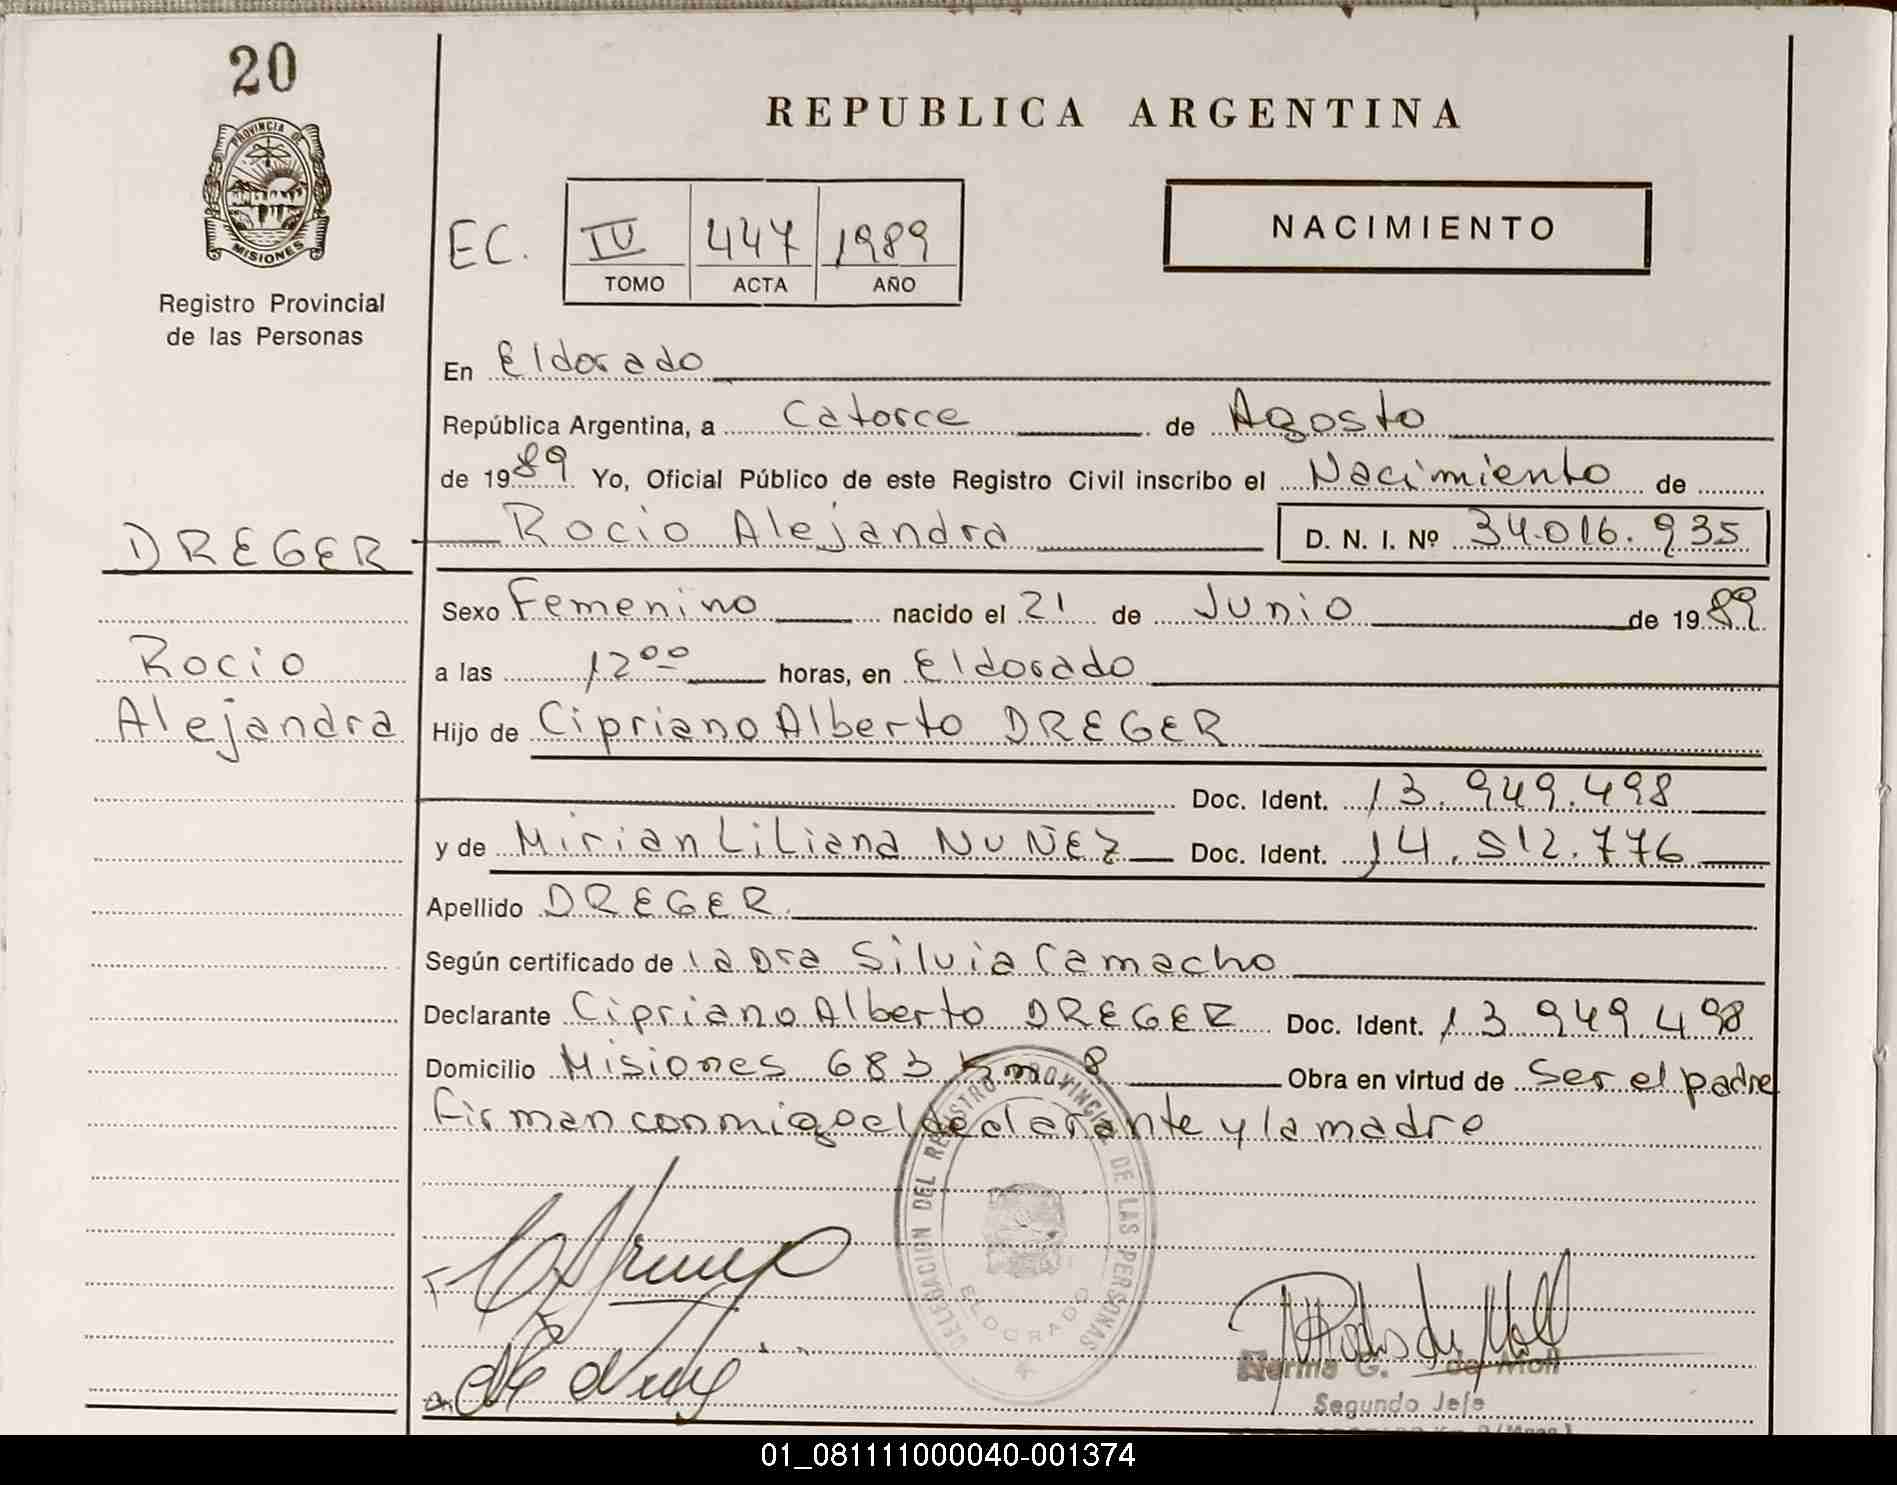 20
PROVINCIA DE
MISIONES
Registro Provincial
de las Personas
REPUBLICA ARGENTINA
NACIMIENTO
EC. IV 447 1989
TOMO ACTA AÑO
En Eldorado
República Argentina, a Catorce de Agosto
de 1989 Yo, Oficial Público de este Registro Civil inscribo el Nacimiento de
DREGER Rocio Alejandra D. N. I. Nº 34.016.935
Sexo Femenino nacido el 21 de Junio de 1989
Rocio
a las 12 00 horas, en Eldorado
Alejandra
Hijo de Cipriano Alberto DREGER
Doc. Ident. 13.949.498
y de Mirian Liliana NUÑEZ Doc. Ident. 14.512.776
Apellido DREGER.
Según certificado de la Dra Silvia Camacho
Declarante Cipriano Alberto DREGER Doc. Ident. 13 949 498
Domicilio Misiones 683 Km 8 Obra en virtud de Ser el padre
firman conmigo el declarante y la madre
DELEGACION DEL REGISTRO PROVINCIAL DE LAS PERSONAS
ELDORADO
Norma G. de Moll
Segundo Jefe
01_081111000040-001374